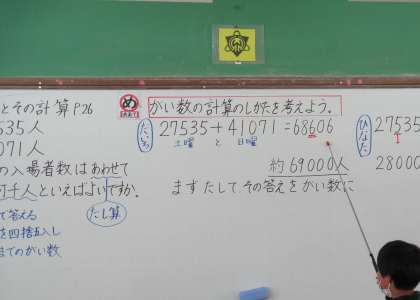 とその計算 P.26
め
がい数の計算のしかたを考えよう。
535人
071人
の入場者数はあわせて
何千人といえばよいですか。
たし算
て答える
を四捨五入し
までのがい数
27535+41071=68606
土曜 と 日曜
約69000人
まずたしてその答えをがい数に
ひなた
27535
28000